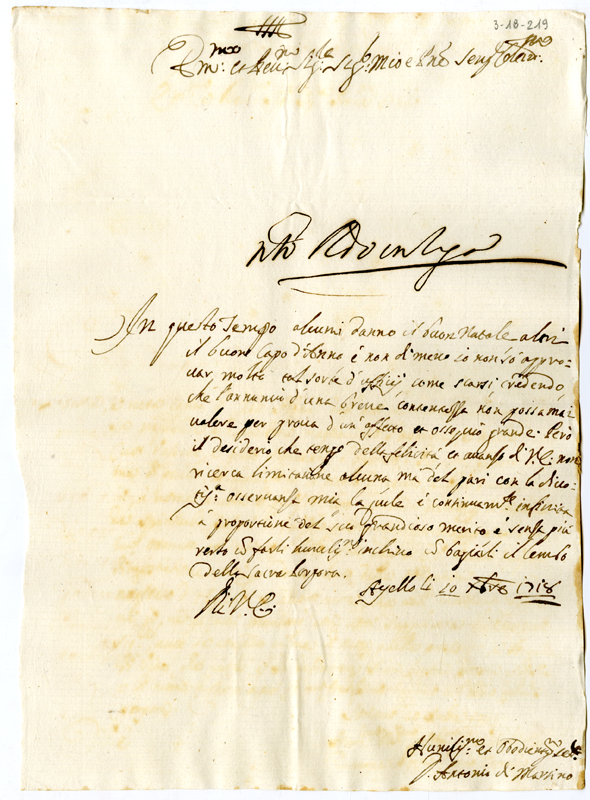 3-18-219
Em.mo et Rev.mo Sig.r Sig.r mio e Pne sempre Colend.mo
In questo Tempo alcuni danno il buon Natale altri
il buon Capo d'Anno è non di meno io non sò appro-
var molto tal sorte d'ufficij come scarsi credendo,
che l'annuncij d'una breve contentezza non possa mai
valere per prova d'un'affetto et ossequio grande. Però
il desiderio che tengo della felicità et avanzo di V.E. non
ricerca limitatione alcuna ma del pari con la
osservanza mia la quale è continuam.te infinita
à proportione del suo grandioso merito è senza più
resto con farli humiliss.o inchino con baciarli il lembo
della sacra Porpora.
Di V.E. Ayello li 20 Xbre 1718
Humiliss.mo et Obedientiss.mo ser.
D. Antonio di Martino